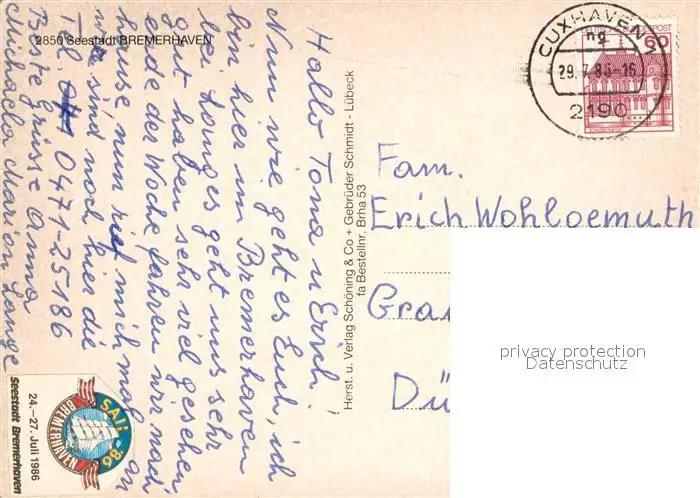 2850 Seestadt BREMERHAVEN
Hallo Toma u Erich!
Nun wie geht es Euch, ich
bin hier im Bremerhaven
bei Lounges geht uns sehr
gut haben sehr viel gesehen
Ende der Woche fahren wir nach
hause nun rief mich mal an
wir sind noch hier die
Tel 0471-25186
Beste grüsse Anna
Michaela Marion Lange
SAIL 86
BREMERHAVEN
24.–27. Juli 1986
Seestadt Bremerhaven
Herst. u. Verlag Schöning & Co + Gebrüder Schmidt - Lübeck
fa Bestellnr. Brha 53
CUXHAVEN 1
ng
29.7.86-16
2190
DEUTSCHE BUNDESPOST
60
Fam.
Erich Wohlgemuth
Gra
Dü
privacy protection
Datenschutz